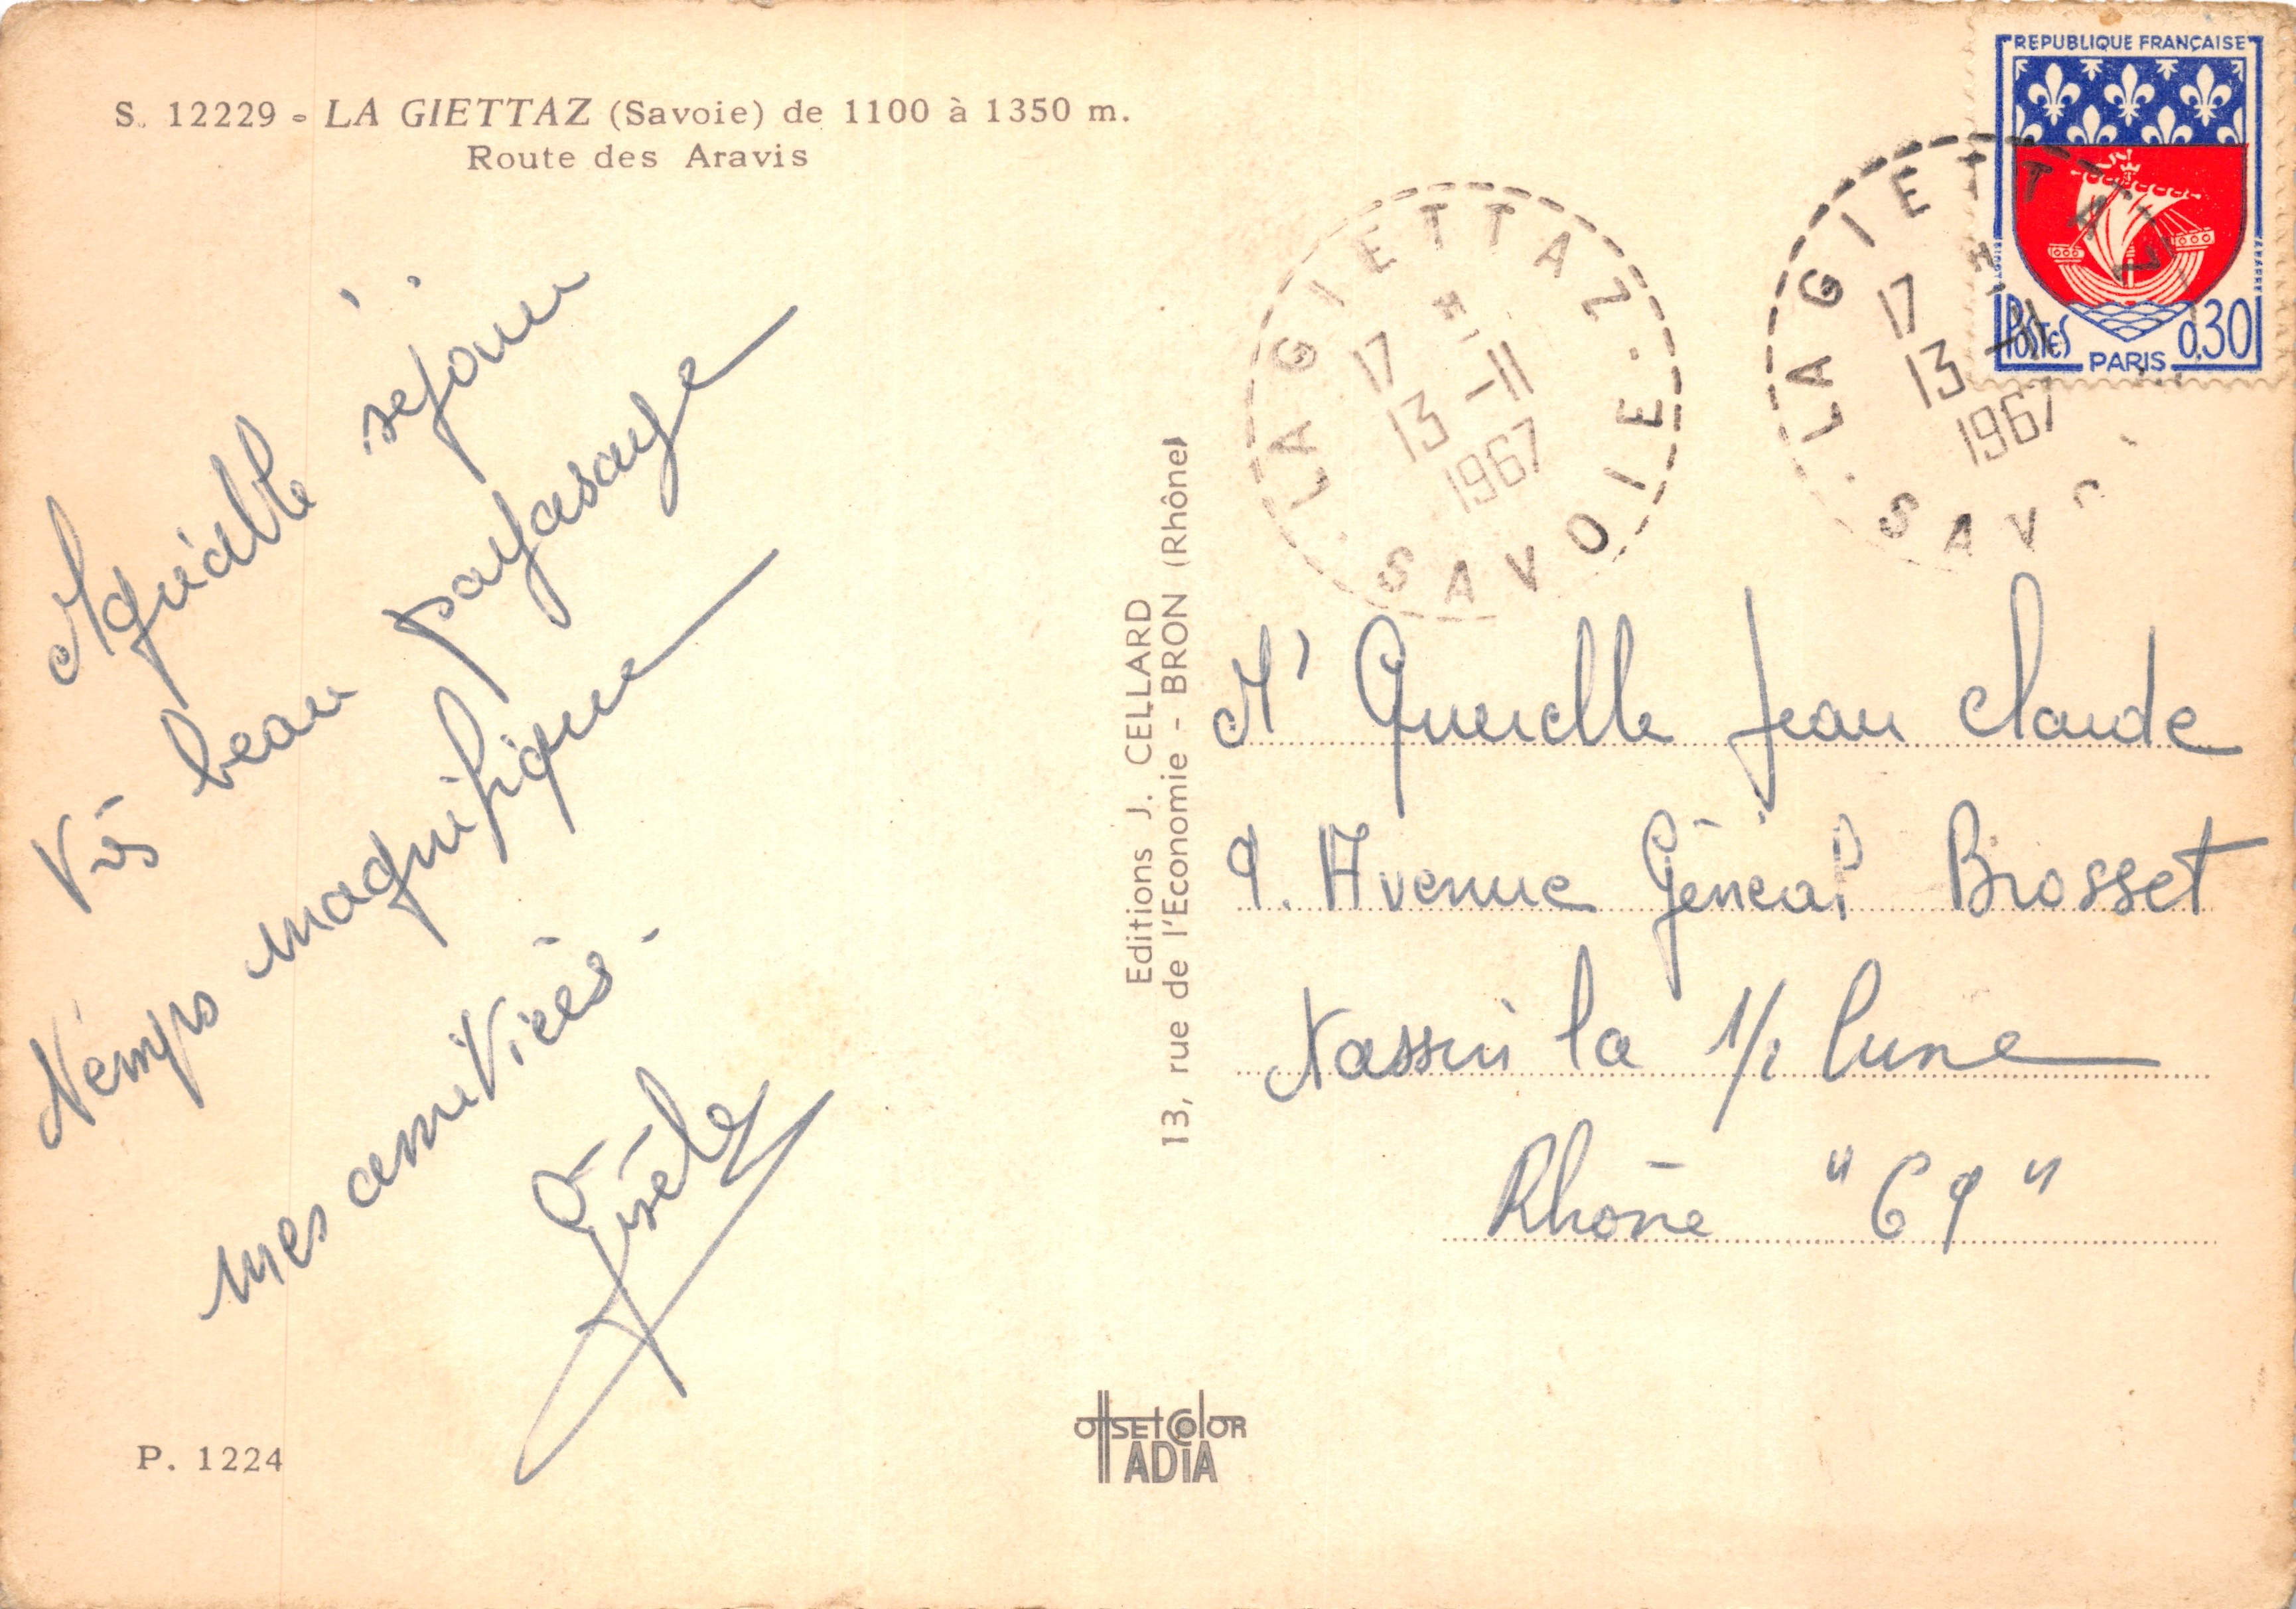 S. 12229 - LA GIETTAZ (Savoie) de 1100 à 1350 m.
Route des Aravis
séjour
très beau paysasage
Temps magnifique
mes amitiées.
Gisèle
P. 1224
Editions J. CELLARD
13, rue de l'Economie - BRON (Rhône)
offsetcolor
ADIA
REPUBLIQUE FRANÇAISE
POSTES
PARIS
0,30
LA GIETTAZ
17
13 -11
1967
SAVOIE
LA GIETTAZ
17
13 -11
1967
SAVO
Mr Querelle Jean Claude
9. Avenue Général Brosset
Tassin la 1/2 lune
Rhône "69"